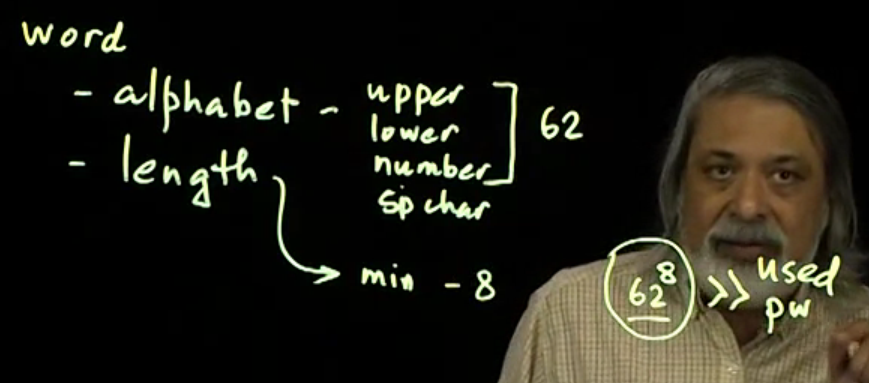 word
- alphabet - upper
lower
number
sp char
] 62
- length
→ min - 8
62⁸ >> used
pw